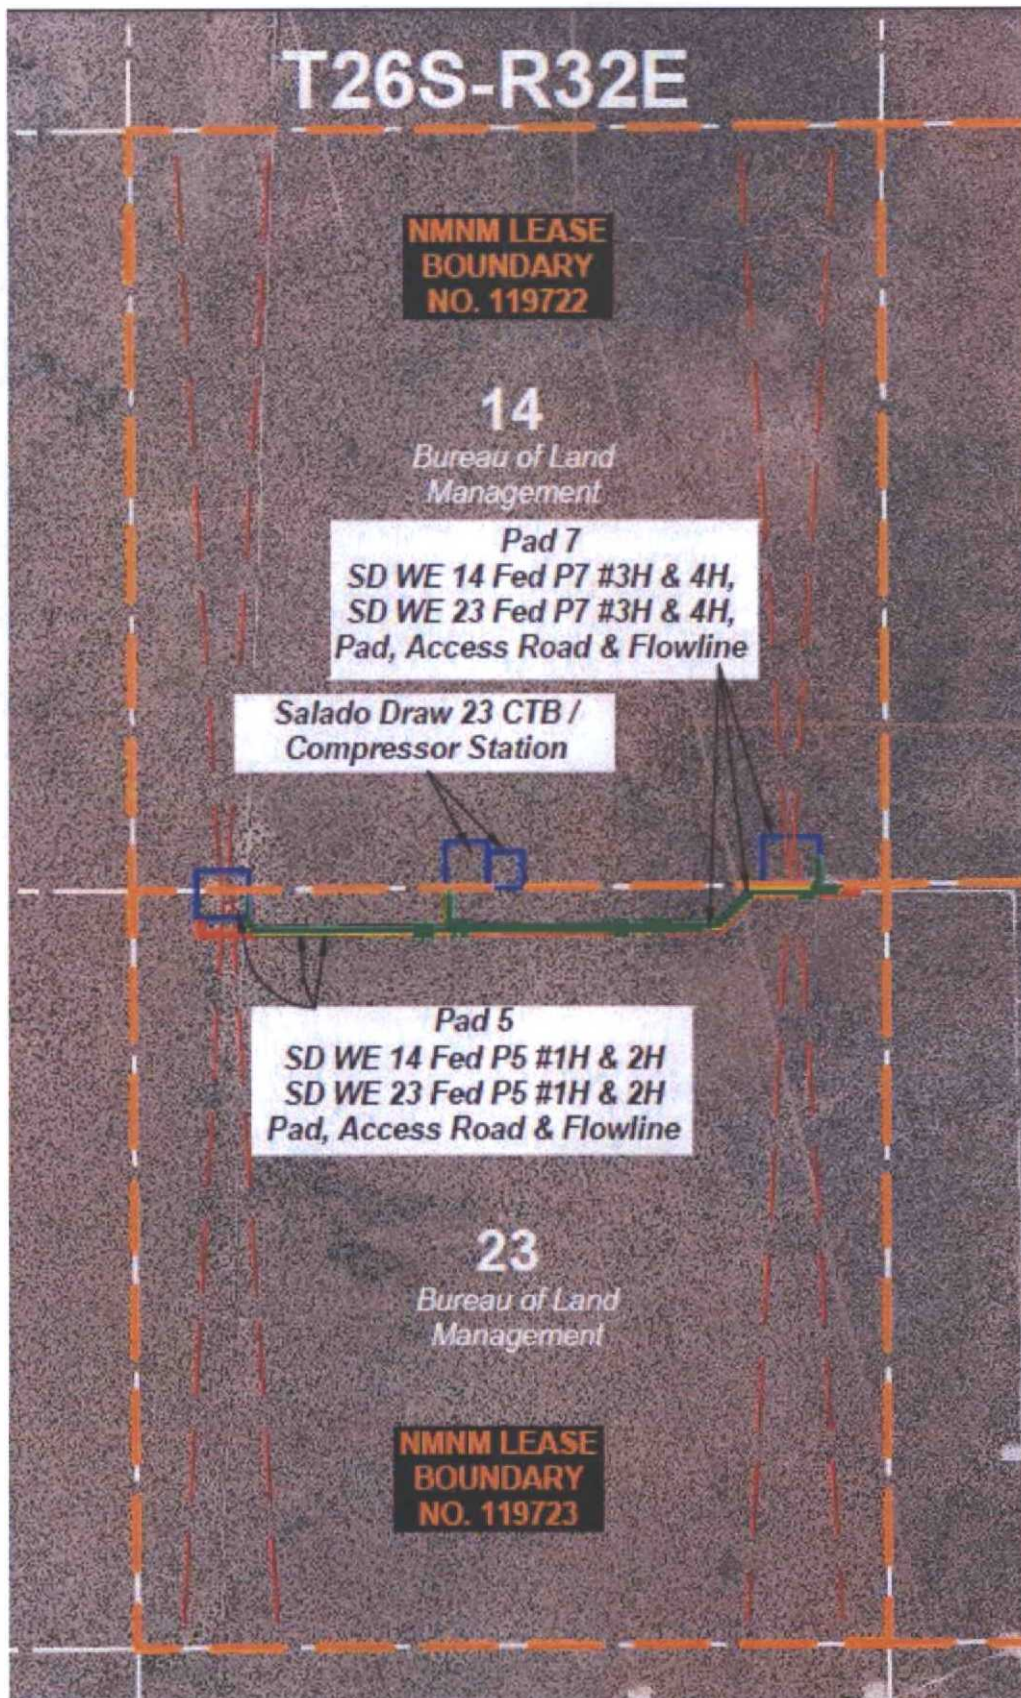 T26S-R32E
NMNM LEASE
BOUNDARY
NO. 119722
14
Bureau of Land
Management
Pad 7
SD WE 14 Fed P7 #3H & 4H,
SD WE 23 Fed P7 #3H & 4H,
Pad, Access Road & Flowline
Salado Draw 23 CTB /
Compressor Station
Pad 5
SD WE 14 Fed P5 #1H & 2H
SD WE 23 Fed P5 #1H & 2H
Pad, Access Road & Flowline
23
Bureau of Land
Management
NMNM LEASE
BOUNDARY
NO. 119723